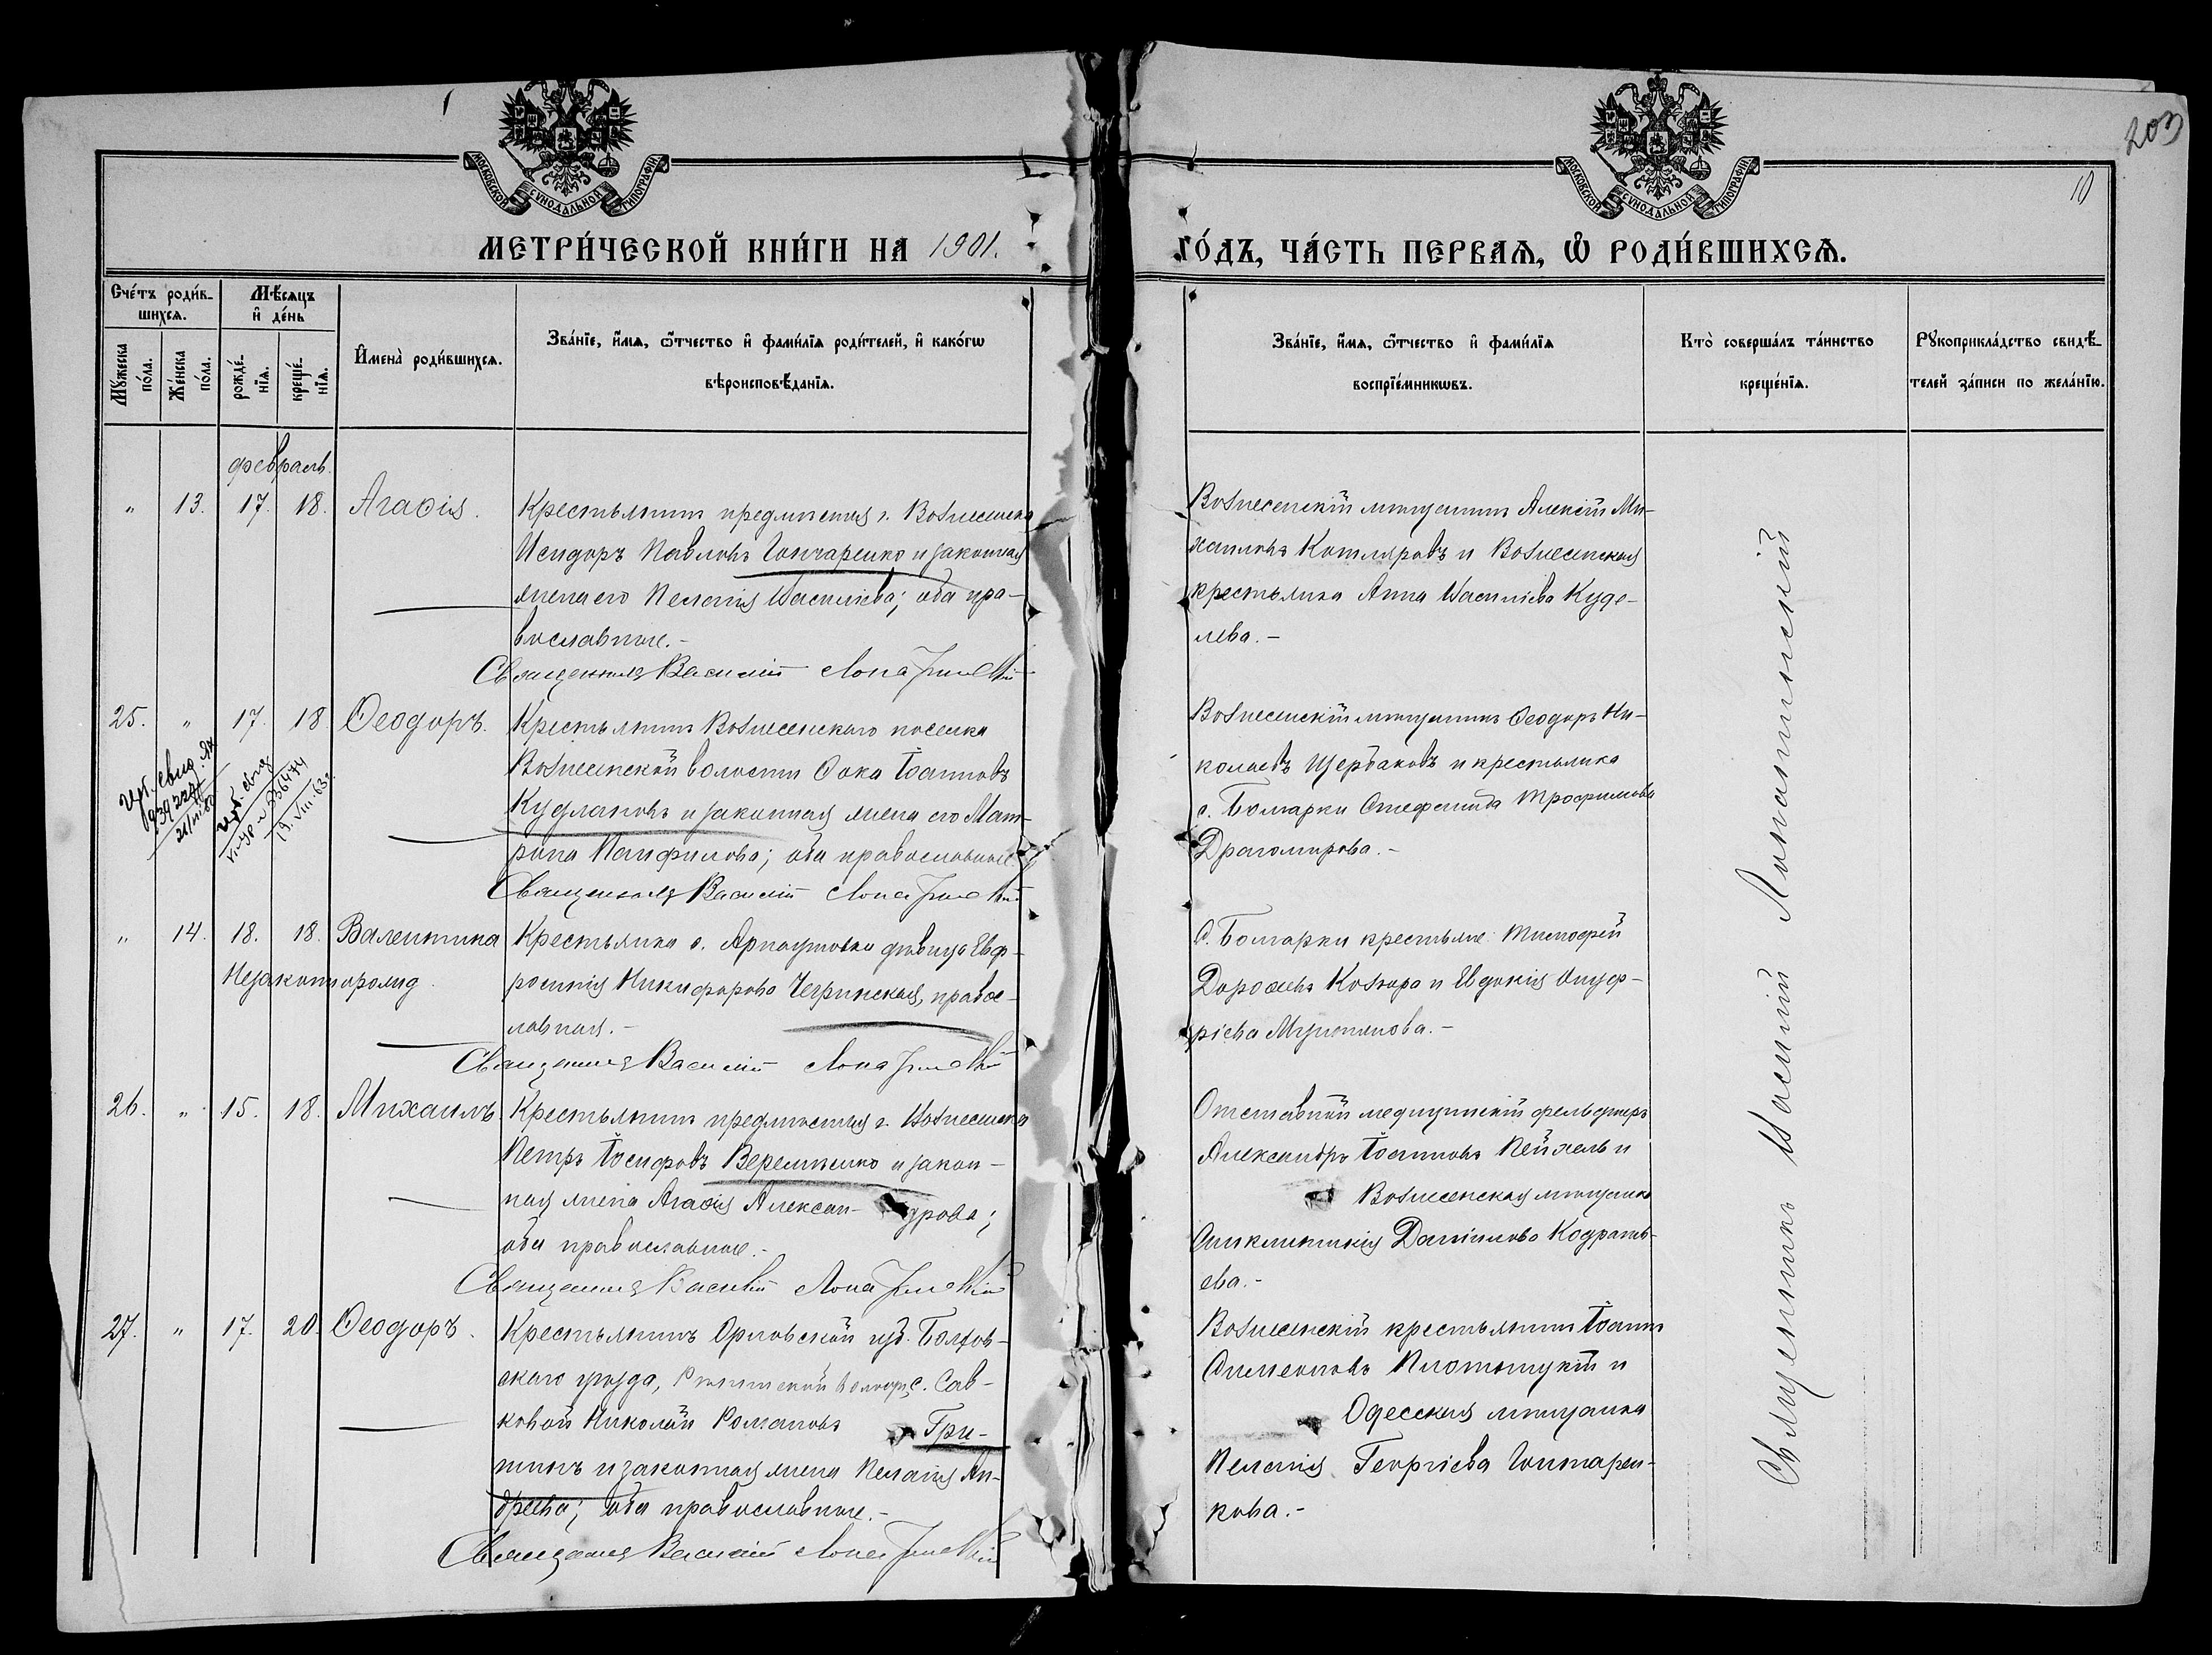 203
10
МОСКОВСКОЙ СѴНОДАЛЬНОЙ ТИПОГРАФІИ
МОСКОВСКОЙ СѴНОДАЛЬНОЙ ТИПОГРАФІИ
МЕТРИ́ЧЕСКОЙ КНИ́ГИ НА 1901.
ГО́ДЪ, ЧА́СТЬ ПЕРВАѦ, Ѡ҆ РОДИ́ВШИХСѦ.
Сче́тъ роди́в-
шихсѧ.
Мꙋ́жеска
по́ла.
Же́нска
по́ла.
Мѣ́сѧцъ
и҆ де́нь
рожде́-
нїѧ.
креще́-
нїѧ.
И҆мена̀ роди́вшихсѧ.
Зва́нїе, и҆́мѧ, ѻ҆́тчество и҆ фами́лїѧ роди́телей, и҆ како́гѡ
вѣроисповѣ́данїѧ.
Зва́нїе, и҆́мѧ, ѻ҆́тчество и҆ фами́лїѧ
воспрїе́мникѡвъ.
Кто̀ соверша́лъ та́инство
креще́нїѧ.
Рꙋкоприкла́дство свидѣ́-
телей за́писи по жела́нїю.
февраль.
" 13. 17. 18. Агаѳія.
Крестьянинъ предмѣстья г. Вознесенска
Исидоръ Павловъ Гончаренко и законная
жена его Пелагія Васильева; оба пра-
вославные.-
Священникъ Василій Лопатинскій
Вознесенскій мѣщанинъ Алексій Ми-
хаиловъ Котляровъ и Вознесенская
крестьянка Анна Васильева Куде-
лева.-
25. " 17. 18 Ѳеодоръ.
Крестьянинъ Вознесенскаго поселка
Вознесенской волости Ѳока Іоанновъ
Кудлановъ и законная жена его Мат-
рона Панфилова; оба православные
Священникъ Василій Лопатинскій
Вознесенскій мѣщанинъ Ѳеодоръ Ни-
колаевъ Щербаковъ и крестьянка
с. Болгарки Стефанида Трофимова
Драгомирова.-
" 14. 18. 18. Валентина
Незаконнорожд.
Крестьянка с. Арнаутовки дѣвица Евф-
росинія Никифорова Чегринская, правос-
лавная.-
Священникъ Василій Лопатинскій
С. Болгарки крестьяне: Тимофей
Дороѳеевъ Козыра и Евдокія Онуф-
ріева
26. " 15. 18. Михаилъ.
Крестьянинъ предмѣстья г. Вознесенска
Петръ Іосифовъ Веремѣенко и закон-
ная жена Агаѳія Алексан- дрова;
оба православные.-
Священникъ Василій Лопатинскій
Отставной медицинскій фельдшеръ
Александръ Іоанновъ Пейхель и
Вознесенская мѣщанка
Анна Даніилова Кодрать-
ева.-
27. " 17. 20. Ѳеодоръ.
Крестьянинъ Орловской губ. Болхов-
скаго уѣзда, волости, с. Сав-
ковой Николай Романовъ Гри-
шинъ и законная жена Пелагія Ан-
дреева; оба православные.-
Священникъ Василій Лопатинскій
Вознесенскій крестьянинъ Іоаннъ
Симеоновъ и
Одесская мѣщанка
Пелагія Георгіева Гонтарен-
кова.-
Священникъ Василій Лопатинскій